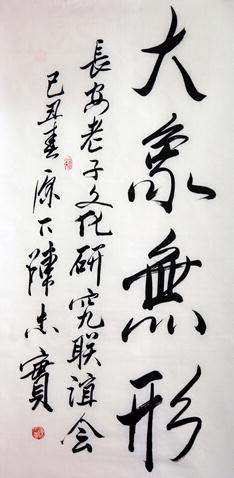 大象無形
長安老子文化研究联谊会
己丑春源下陳忠實